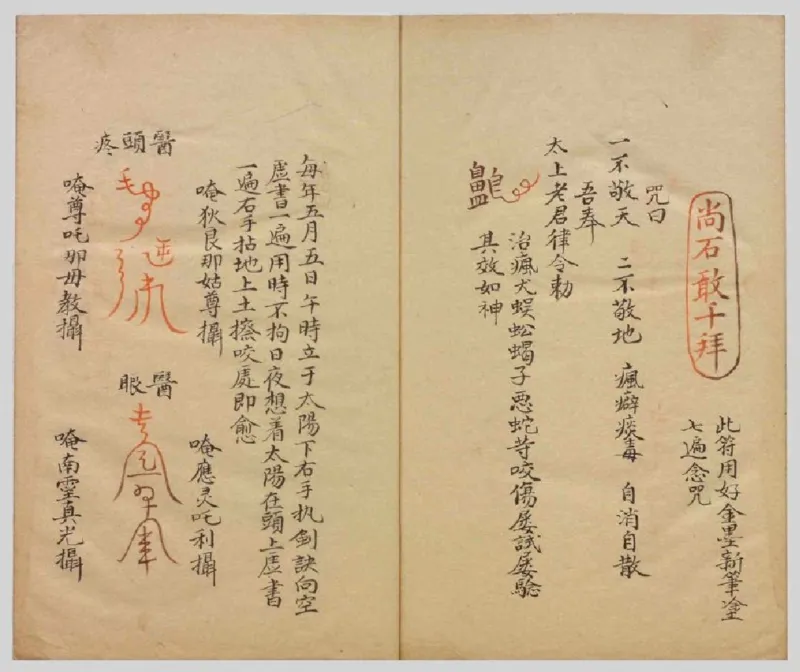 尚石敢千拜
此符用好金墨新筆塗
七遍念咒
咒曰
一不敬天 二不敬地 瘋癖痰毒 自消自散
吾奉
太上老君律令勅
治瘋犬蜈蚣蝎子恶蛇䓁咬傷屡試屡驗
其效如神
每年五月五日午時立于太陽下右手执劍訣向空
虛書一遍用時不拘日夜想着太陽在頭上虛書
一遍右手拈地上土擦咬處即愈
唵狄良那姑尊攝
唵應灵吒利攝
醫頭疼
唵尊吒那毋教攝
醫眼
唵南雷真光攝